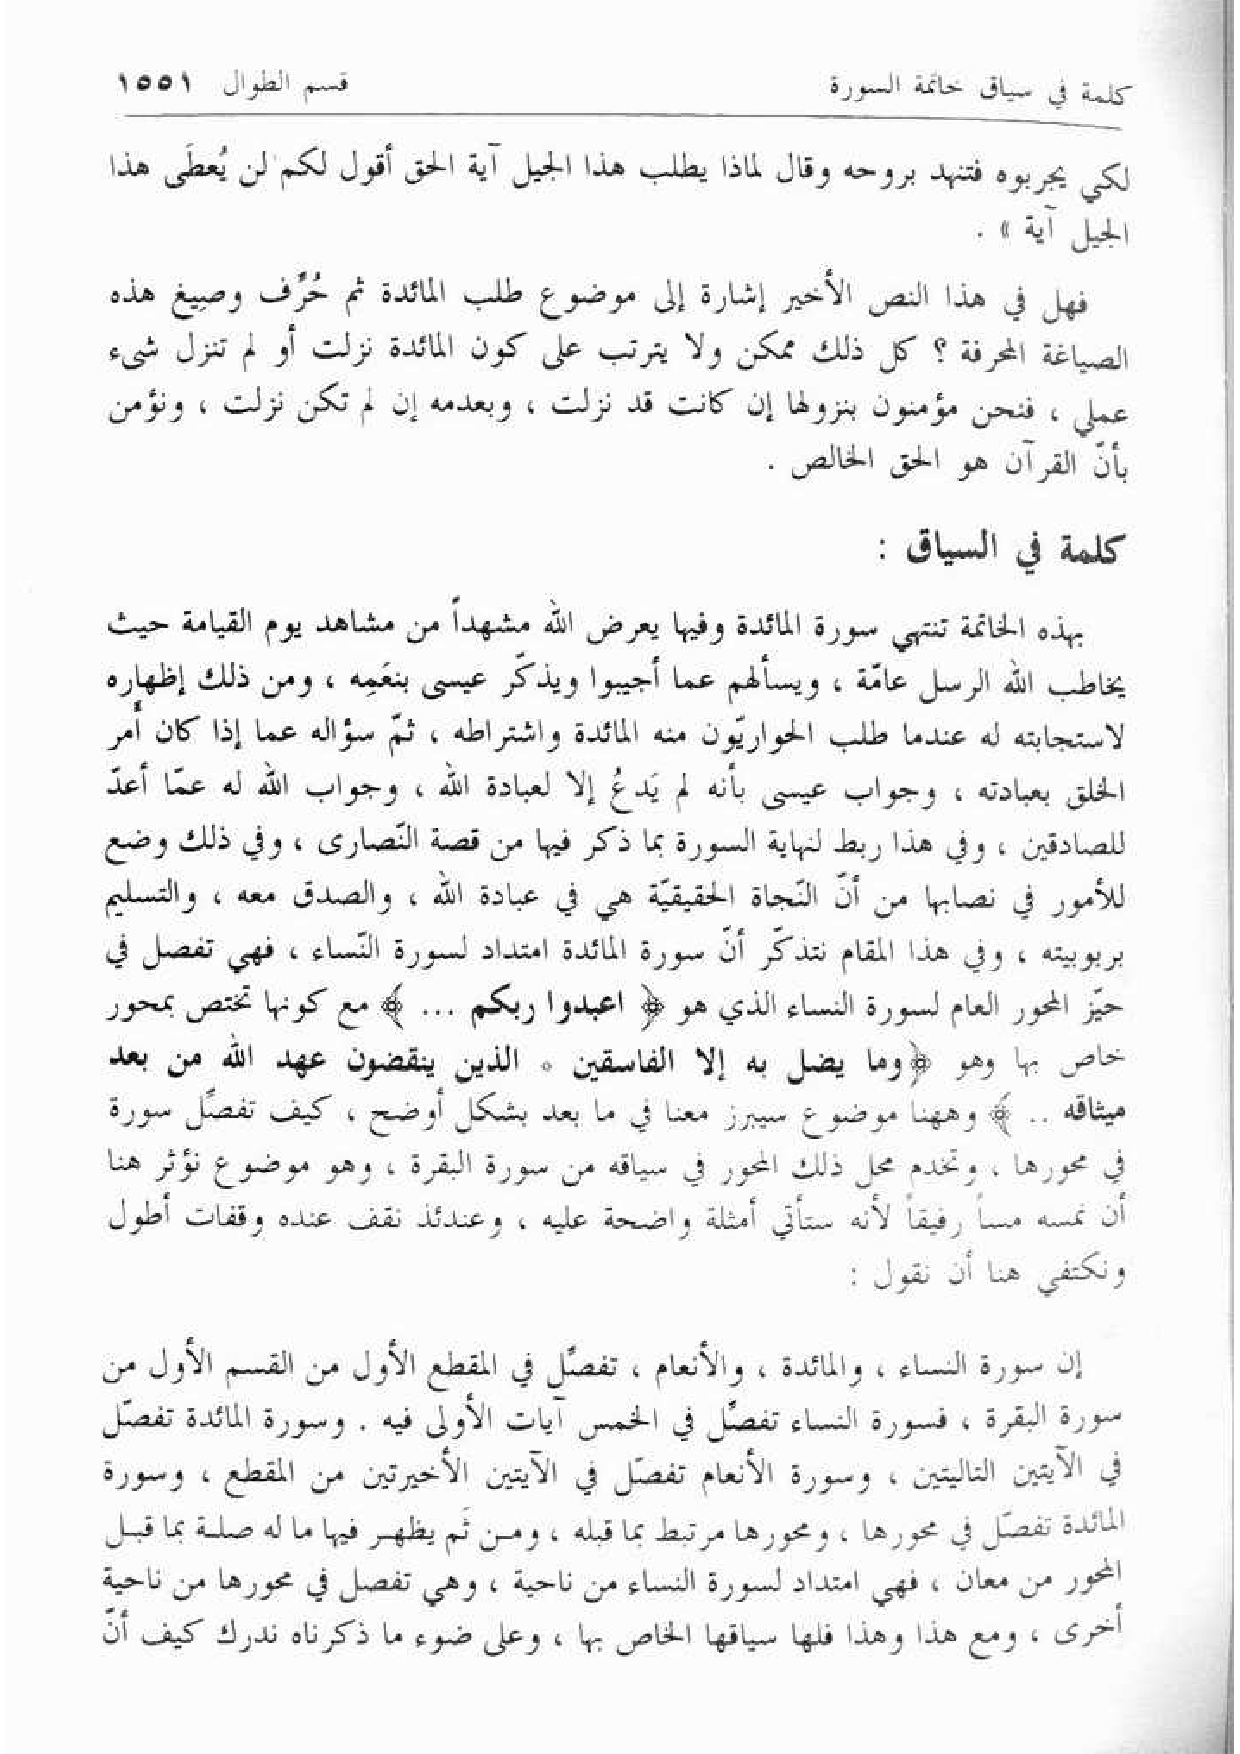 كلمة في سياق خاتمة السورة قسم الطوال ١٥٥١
لكي يجربوه فتنهد بروحه وقال لماذا يطلب هذا الجيل آية الحق أقول لكم لن يُعطَى هذا
الجيل آية » .
فهل في هذا النص الأخير إشارة إلى موضوع طلب المائدة ثم حُرِّف وصِيغ هذه
الصياغة المحرفة ؟ كل ذلك ممكن ولا يترتب على كون المائدة نزلت أو لم تنزل شىء
عملي ، فنحن مؤمنون بنزولها إن كانت قد نزلت ، وبعدمه إن لم تكن نزلت ، ونؤمن
بأنّ القرآن هو الحق الخالص .
كلمة في السياق :
بهذه الخاتمة تنتهي سورة المائدة وفيها يعرض الله مشهداً من مشاهد يوم القيامة حيث
يخاطب الله الرسل عامّة ، ويسألهم عما أجيبوا ويذكّر عيسى بنعَمِه ، ومن ذلك إظهاره
لاستجابته له عندما طلب الحواريّون منه المائدة واشتراطه ، ثمّ سؤاله عما إذا كان أمر
الخلق بعبادته ، وجواب عيسى بأنه لم يَدعُ إلا لعبادة الله ، وجواب الله له عمّا أعدّ
للصادقين ، وفي هذا ربط لنهاية السورة بما ذكر فيها من قصة النّصارى ، وفي ذلك وضع
للأمور في نصابها من أنّ النّجاة الحقيقيّة هي في عبادة الله ، والصدق معه ، والتسليم
بربوبيته ، وفي هذا المقام نتذكّر أنّ سورة المائدة امتداد لسورة النّساء ، فهي تفصل في
حيّز المحور العام لسورة النساء الذي هو ﴿ اعبدوا ربكم ... ﴾ مع كونها تختص بمحور
خاص بها وهو ﴿وما يضل به إلا الفاسقين * الذين ينقضون عهد الله من بعد
ميثاقه .. ﴾ وههنا موضوع سيبرز معنا في ما بعد بشكل أوضح ، كيف تفصِّل سورة
في محورها ، وتخدم محل ذلك المحور في سياقه من سورة البقرة ، وهو موضوع نؤثر هنا
أن نمسه مساً رفيقاً لأنه ستأتي أمثلة واضحة عليه ، وعندئذ نقف عنده وقفات أطول
ونكتفي هنا أن نقول :
إن سورة النساء ، والمائدة ، والأنعام ، تفصِّل في المقطع الأول من القسم الأول من
سورة البقرة ، فسورة النساء تفصِّل في الخمس آيات الأولى فيه . وسورة المائدة تفصّل
في الآيتين التاليتين ، وسورة الأنعام تفصّل في الآيتين الأخيرتين من المقطع ، وسورة
المائدة تفصّل في محورها ، ومحورها مرتبط بما قبله ، ومن ثَم يظهر فيها ما له صلة بما قبل
المحور من معان ، فهي امتداد لسورة النساء من ناحية ، وهي تفصل في محورها من ناحية
أخرى ، ومع هذا وهذا فلها سياقها الخاص بها ، وعلى ضوء ما ذكرناه ندرك كيف أنّ